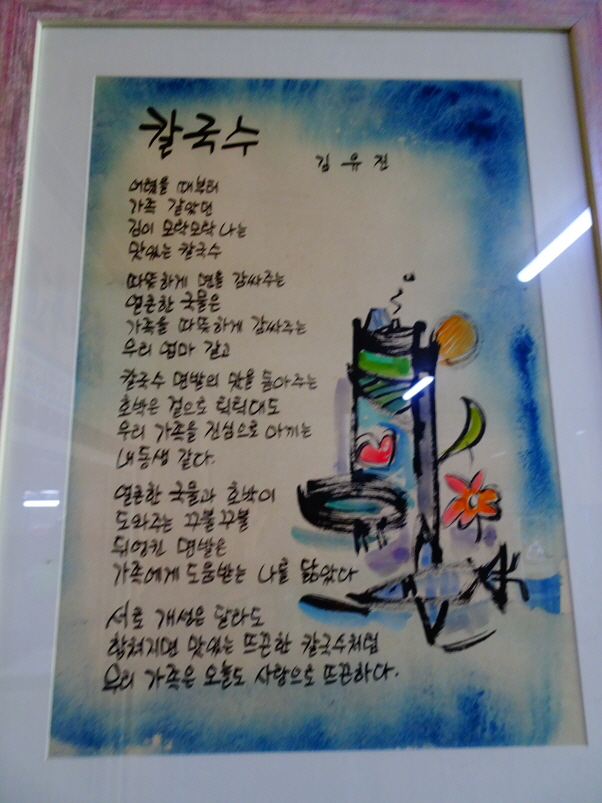 칼국수
김유진
어렸을 때부터
가족 같았던
김이 모락모락 나는
맛있는 칼국수
따뜻하게 면을 감싸주는
얼큰한 국물은
가족을 따뜻하게 감싸주는
우리 엄마 같고
칼국수 면발의 맛을 돋아주는
호박은 겉으로 틱틱대도
우리 가족을 진심으로 아끼는
내동생 같다.
얼큰한 국물과 호박이
도와주는 꾸불꾸불
뒤엉킨 면발은
가족에게 도움받는 나를 닮았다
서로 개성은 달라도
합쳐지면 맛있는 뜨끈한 칼국수처럼
우리 가족은 오늘도 사랑으로 뜨끈하다.